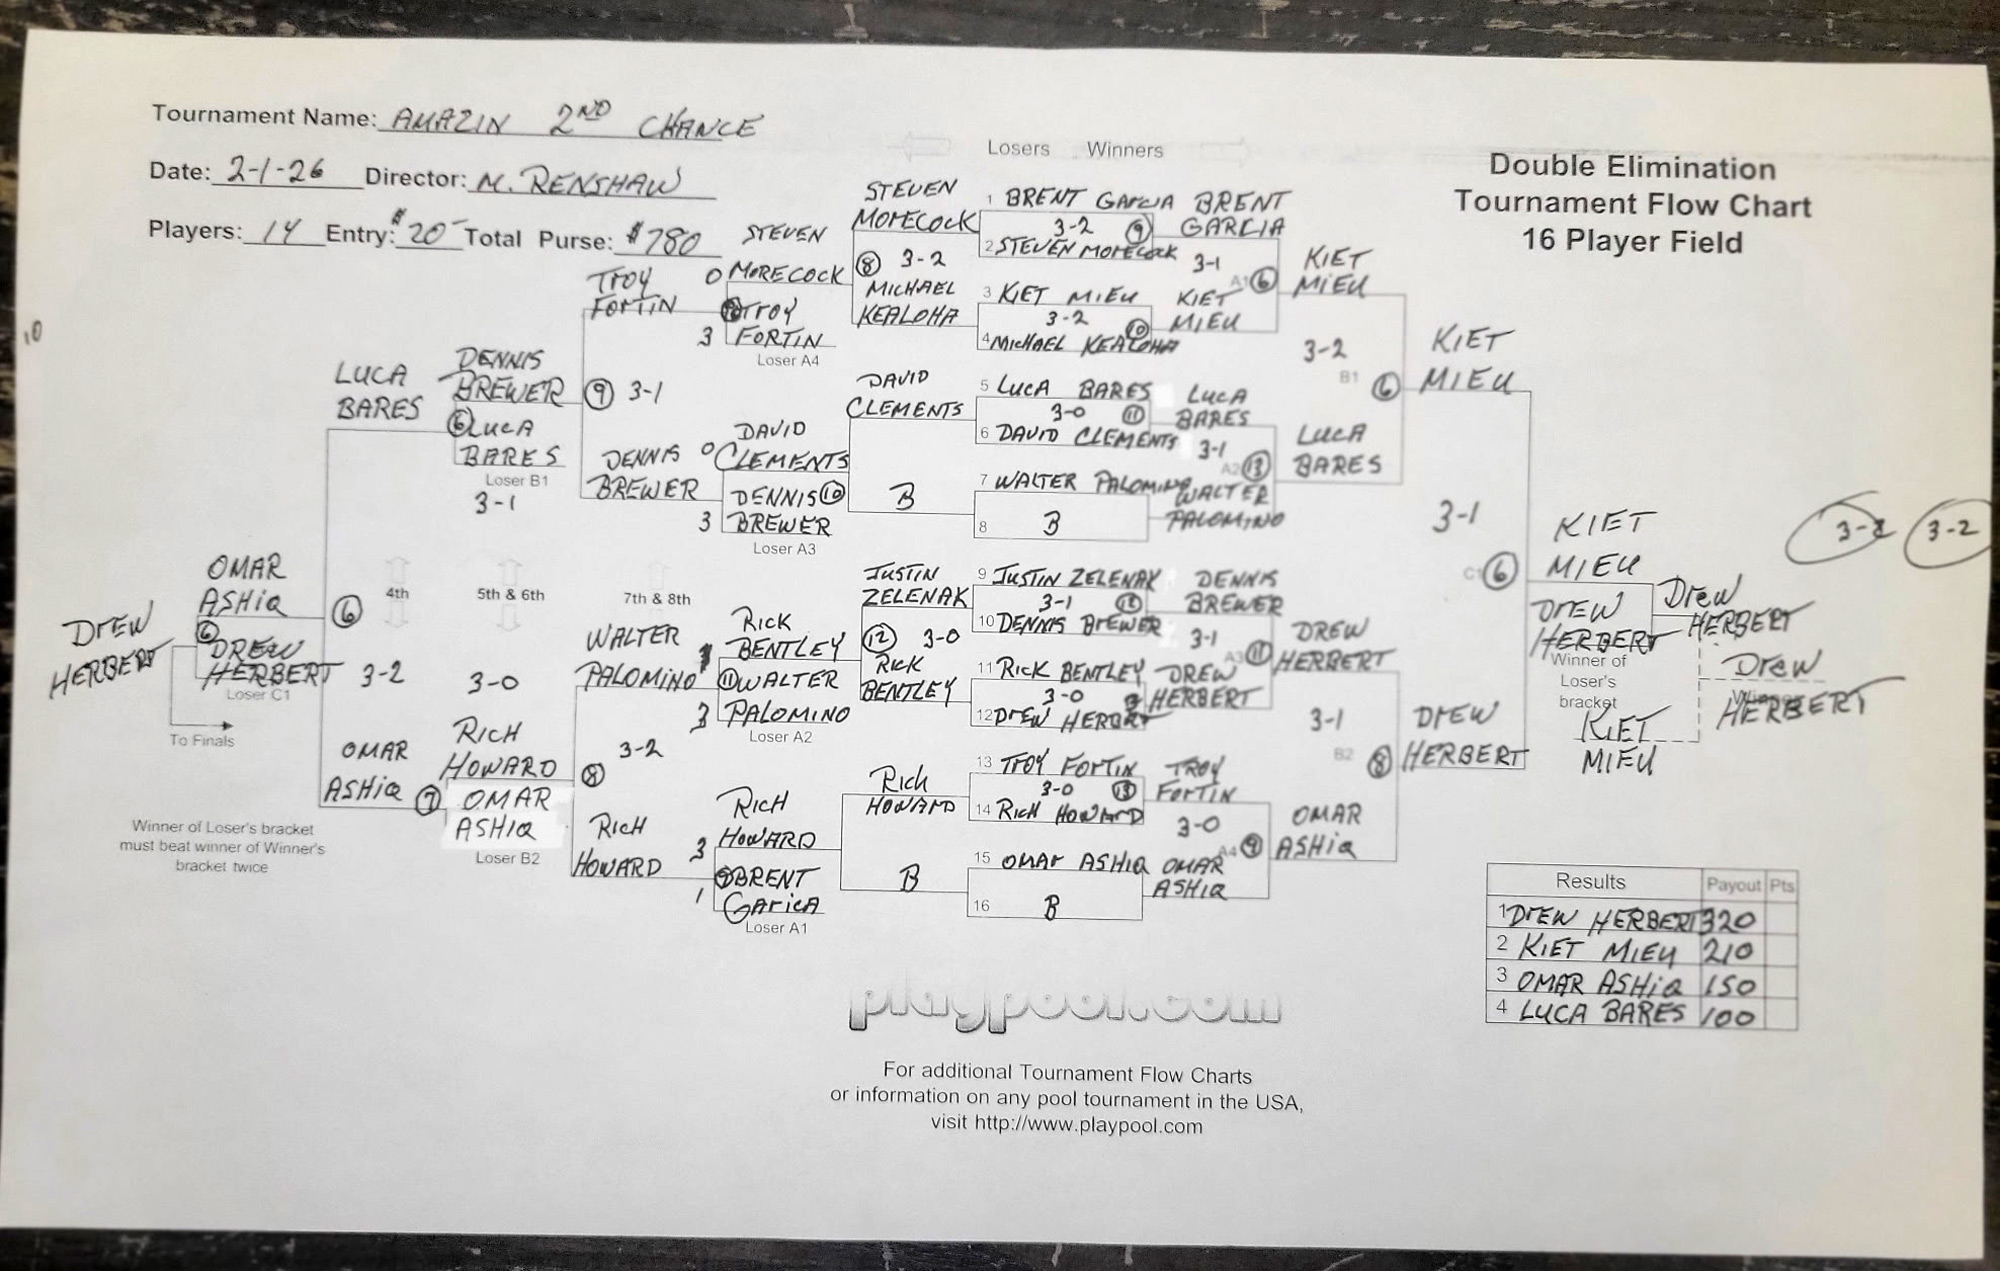 Tournament Name: AMAZIN 2ND CHANCE
Date: 2-1-26 Director: M. RENSHAW
Players: 14 Entry: $20- Total Purse: $780
Losers Winners
Double Elimination
Tournament Flow Chart
16 Player Field
10
DREW
HERBERT
To Finals
Winner of Loser's bracket
must beat winner of Winner's
bracket twice
OMAR
ASHIQ
6
DREW
HERBERT
Loser C1
LUCA
BARES
6
3-2
OMAR
ASHIQ
4th
DENNIS
BREWER
6 LUCA
BARES
Loser B1
3-1
5th & 6th
3-0
RICH
HOWARD
7 OMAR
ASHIQ
Loser B2
TROY
FORTIN
9 3-1
DENNIS
BREWER
7th & 8th
WALTER
PALOMINO
8 3-2
RICH
HOWARD
STEVEN
0 MORECOCK
TROY
3 FORTIN
Loser A4
DAVID
0 CLEMENTS
DENNIS 10
3 BREWER
Loser A3
RICK
BENTLEY
11 WALTER
3 PALOMINO
Loser A2
RICH
3 HOWARD
BRENT
1 GARICA
Loser A1
STEVEN
MORECOCK
8 3-2
MICHAEL
KEALOHA
DAVID
CLEMENTS
B
JUSTIN
ZELENAK
12 3-0
RICK
BENTLEY
RICH
HOWARD
B
1 BRENT GARCIA
3-2 9
2 STEVEN MORECOCK
3 KIET MIEU
3-2 10
4 MICHAEL KEALOHA
5 LUCA BARES
3-0 11
6 DAVID CLEMENTS
7 WALTER PALOMINO
8 B
9 JUSTIN ZELENAK
3-1 12
10 DENNIS BREWER
11 RICK BENTLEY
3-0
12 DREW HERBERT
13 TROY FORTIN
3-0 13
14 RICH HOWARD
15 OMAR ASHIQ
16 B
BRENT
GARCIA
3-1 A1 6
KIET
MIEU
LUCA
BARES
3-1 A2 13
WALTER
PALOMINO
DENNIS
BREWER
3-1 A3 11
DREW
HERBERT
TROY
FORTIN
3-0 A4 9
OMAR
ASHIQ
KIET
MIEU
3-2
B1 6
LUCA
BARES
DREW
HERBERT
3-1
B2 8
OMAR
ASHIQ
KIET
MIEU
3-1
C1 6
DREW
HERBERT
KIET
MIEU
DREW
HERBERT
Winner of
Loser's
bracket
KIET
MIEU
Drew
HERBERT
Drew
HERBERT
3-2
Results Payout Pts
1 DREW HERBERT 320
2 KIET MIEU 210
3 OMAR ASHIQ 150
4 LUCA BARES 100
playpool.com
For additional Tournament Flow Charts
or information on any pool tournament in the USA,
visit http://www.playpool.com